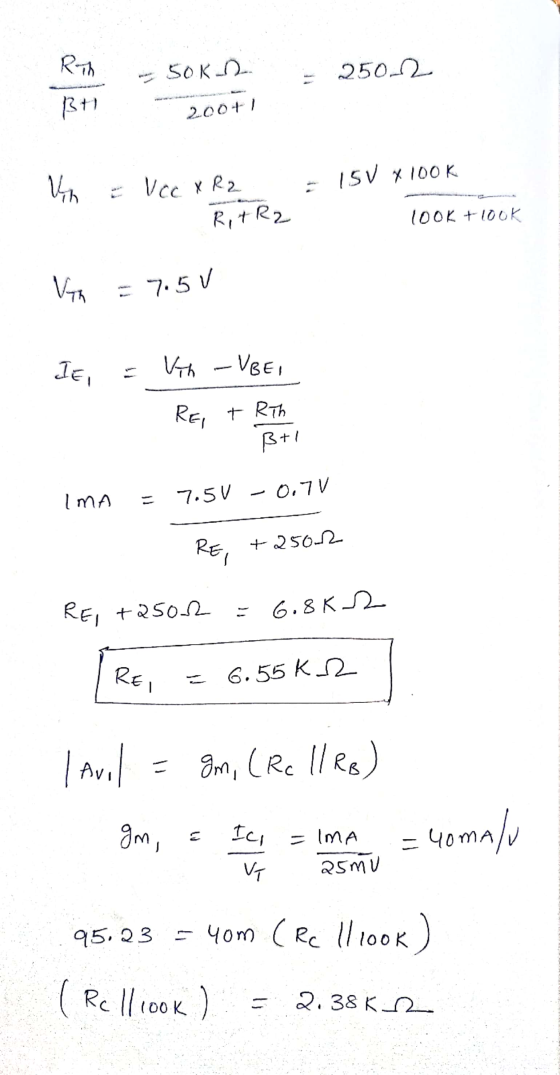 RTh/(β+1) = 50KΩ/(200+1) = 250Ω
VTh = Vcc x R2/(R1+R2) = 15V x 100K/(100K+100K)
VTh = 7.5V
IE1 = (VTh - VBE1)/(RE1 + RTh/(β+1))
1mA = (7.5V - 0.7V)/(RE1 + 250Ω)
RE1 + 250Ω = 6.8KΩ
RE1 = 6.55KΩ
|Av1| = gm1 (Rc || RB)
gm1 = Ic1/VT = 1mA/25mV = 40mA/V
95.23 = 40m (Rc || 100K)
(Rc || 100K) = 2.38KΩ